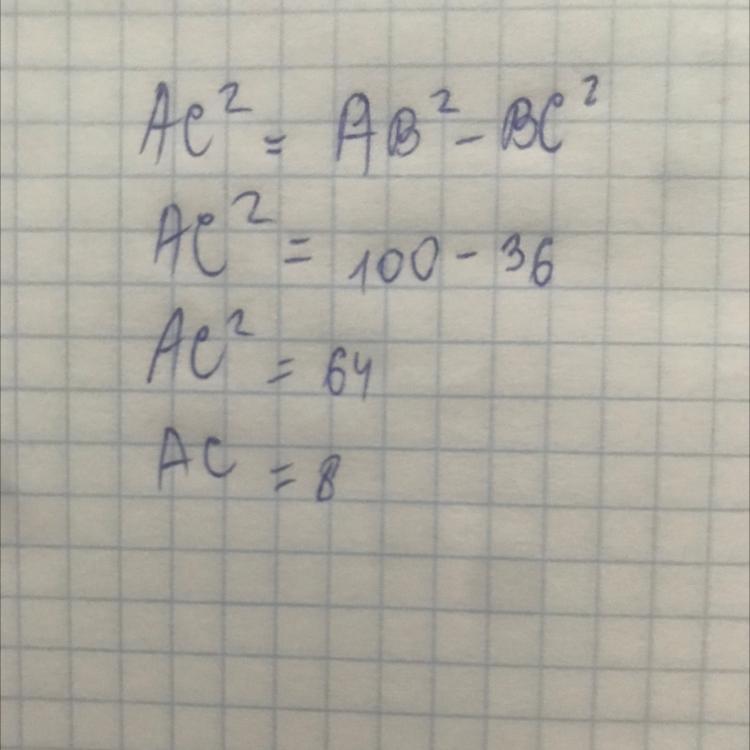 AC² = AB² - BC²
AC² = 100 - 36
AC² = 64
AC = 8